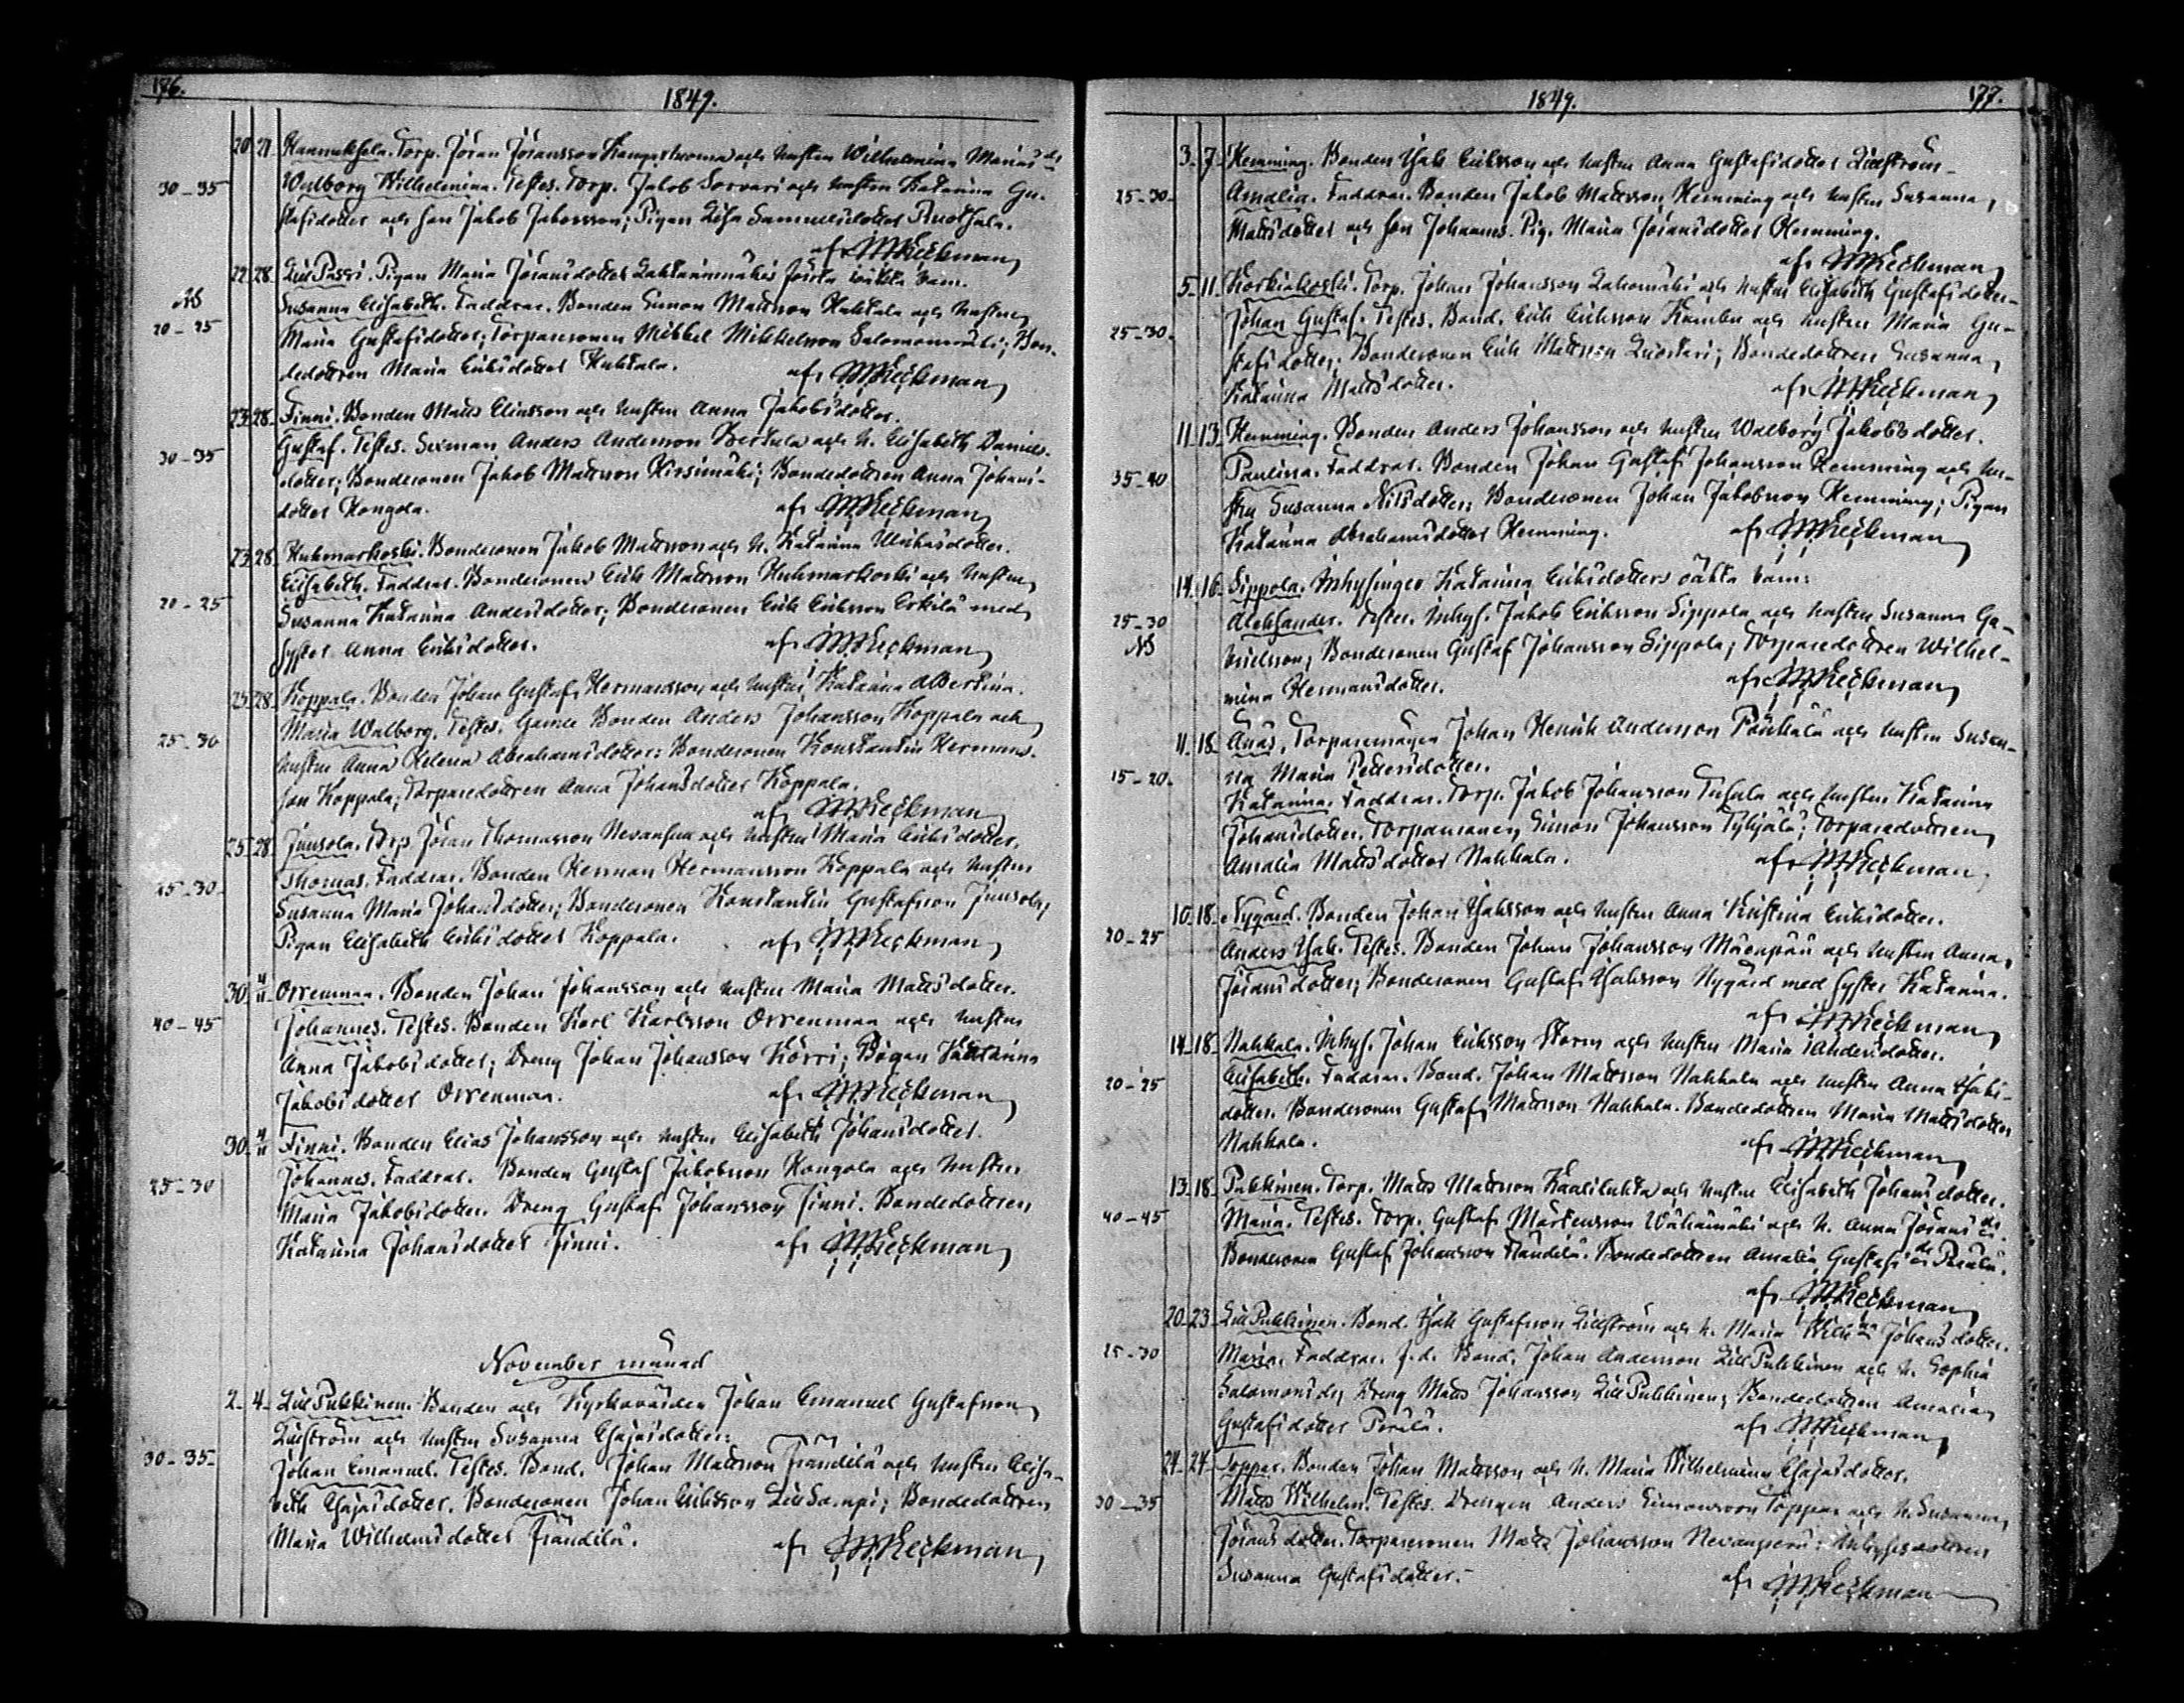 176.
1849.
20 21 Hannuksela. Torp. Jöran Jöransson Kangastuoma och hustru Wilhelmina Mariasdr
30-35 Walborg Wilhelmina. Testes. Torp. Jakob Sorvari och hustru Katarina Gu-
stafsdotter och son Jakob Jakobsson; Pigan Lisa Samuelsdotter Ruotsala.
af MHeickman
22 28 LillPassi. Pigan Maria Jöransdotter första oäkta barn.
NB
20-25 Susanna Elisabeth. Faddrar. Bonden Simon Mattsson Huhtala och hustru
Maria Gustafsdotter; Torparesonen Mikkel Mikkelsson Salomonmäki; Bon-
dedottren Maria Eriksdotter Huhtala. af MHeickman
23 28 Finni. Bonden Matts Eliasson och hustru Anna Jakobsdotter.
30-35 Gustaf. Testes. Sexman Anders Andersson Bertula och h. Elisabeth Daniels-
dotter; Bondesonen Jakob Mattsson Hirsimäki; Bondedottren Anna Johans-
dotter Kongola. af MHeickman
23 28 Huhmarkoski. Bondesonen Jakob Mattsson och h. Katarina Ulrikasdotter.
Elisabeth. Faddrar. Bondesonen Erik Mattsson Huhmarkoski och hustru
20-25 Susanna Katarina Andersdotter; Bondesonen Erik Eriksson Erkilä med
syster Anna Eriksdotter. af MHeickman
25 28 Koppala. Bonden Johan Gustaf Hermansson och hustru Katarina Albertina.
25-30 Maria Walborg. Testes. Gamle Bonden Anders Johansson Koppala och
hustru Anna Helena Abrahamsdotter; Bondesonen Konstantin Hermans-
son Koppala; Torparedottren Anna Johansdotter Koppala.
af MHeickman
25 28 Junsola. Torp. Jöran Thomasson Nevansuu och hustru Maria Eriksdotter.
25-30 Thomas. Faddrar. Bonden Herman Hermansson Koppala och hustru
Susanna Maria Johansdotter; Bondesonen Konstantin Gustafsson Junsola;
Pigan Elisabeth Eriksdotter Koppala. af MHeickman
30 4/11 Orrenmaa. Bonden Johan Johansson och hustru Maria Mattsdotter.
40-45 Johannes. Testes. Bonden Karl Karlsson Orrenmaa och hustru
Anna Jakobsdotter; Dreng Johan Johansson Körri; Pigan Katarina
Jakobsdotter Orrenmaa. af MHeickman
30 4/11 Finni. Bonden Elias Johansson och hustru Elisabeth Johansdotter.
25-30 Johannes. Faddrar. Bonden Gustaf Jakobsson Kongola och hustru
Maria Jakobsdotter. Dreng Gustaf Johansson Finni. Bondedottren
Katarina Johansdotter Finni. af MHeickman
November månad
2 4 LillPukkinen. Bonden och Kyrkovärden Johan Emanuel Gustafsson
Lillström och hustru Susanna Esajasdotter:
30-35 Johan Emanuel. Testes. Bond. Johan Mattsson Frändilä och hustru Elisa-
beth Esajasdotter. Bondesonen Johan Eriksson; Bondedottren
Maria Wilhelmsdotter Frändilä. af MHeickman
1849.
177.
3 7 Hemming. Bonden Isak Eriksson och hustru Anna Gustafsdotter Lillström
25-30 Amalia. Faddrar. Bonden Jakob Mattsson Hemming och hustru Susanna
Mattsdotter och son Johannes. Pig. Maria Jöransdotter Hemming.
af MHeickman
5 11 Korkiakoski. Torp. Johan Johansson Lahomäki och hustru Elisabeth Gustafsdotter
25-30 Johan Gustaf. Testes. Bond. Erik Eriksson och hustru Maria Gu-
stafsdotter. Bondesonen Erik Mattsson; Bondedottren Susanna
Katarina Mattsdotter. af MHeickman
11 13 Hemming. Bonden Anders Johansson och hustru Walborg Jakobsdotter.
35-40 Paulina. Faddrar. Bonden Johan Gustaf Johansson Hemming och hu-
stru Susanna Nilsdotter; Bondesonen Johan Jakobsson Hemming; Pigan
Katarina Abrahamsdotter Hemming. af MHeickman
14 16 Sippola. Inhysinges Katarina Eriksdotters oäkta barn:
25-30 Aleksander. Testes. Inhys. Jakob Eriksson Sippola och hustru Susanna Ga-
NB brielsson; Bondesonen Gustaf Johansson Sippola; Torparedottren Wilhel-
mina Hermansdotter. af MHeickman
11 18 Anäs. Torparemågen Johan Henrik Andersson och hustru Susan-
na Maria Pettersdotter.
15-20 Katarina. Faddrar. Torp. Jakob Johansson och hustru Katarina
Johansdotter. Torparesonen Simon Johansson Tyhjälä; Torparedottren
Amalia Mattsdotter Nahkala. af MHeickman
10 18 Nygård. Bonden Johan Isaksson och hustru Anna Kristina Eriksdotter.
20-25 Anders Isak. Testes. Bonden Johan Johansson Mäenpää och hustru Anna
Jöransdotter; Bondesonen Gustaf Isaksson Nygård med syster Katarina.
af MHeickman
14 18 Nahkala. Inhys. Johan Eriksson Storm och hustru Maria Andersdotter.
20-25 Elisabeth. Faddrar. Bond. Johan Mattsson Nahkala och hustru Anna Isaks-
dotter. Bondesonen Gustaf Mattsson Nahkala. Bondedottren Maria Mattsdotter
Nahkala. af MHeickman
13 18 Pukkinen. Torp. Matts Mattsson Kaaliluhta och hustru Elisabeth Johansdotter.
40-45 Maria. Testes. Torp. Gustaf Mårtensson Wähämäki och h. Anna Jöransdr.
Bondesonen Gustaf Johansson Frändilä. Bondedottren Amalia Gustafsdr Perälä.
af MHeickman
20 23 LillPukkinen. Bond. Isak Gustafsson Lillström och h. Maria Wilhna Johansdotter.
25-30 Maria. Faddrar. f.d. Bond. Johan Andersson LillPukkinen och h. Sophia
Salomonsdr; Dreng Matts Johansson LillPukkinen; Bondedottren Amalia
Gustafsdotter Perälä. af MHeickman
24 24 Toppar. Bonden Johan Mattsson och h. Maria Wilhelmina Esajasdotter.
30-35 Matts Wilhelm. Testes. Drengen Anders Simonsson Toppar och h. Susanna
Jöransdotter. Torparesonen Matts Johansson Nevanperä; Inhysesdottren
Susanna Gustafsdotter. af MHeickman